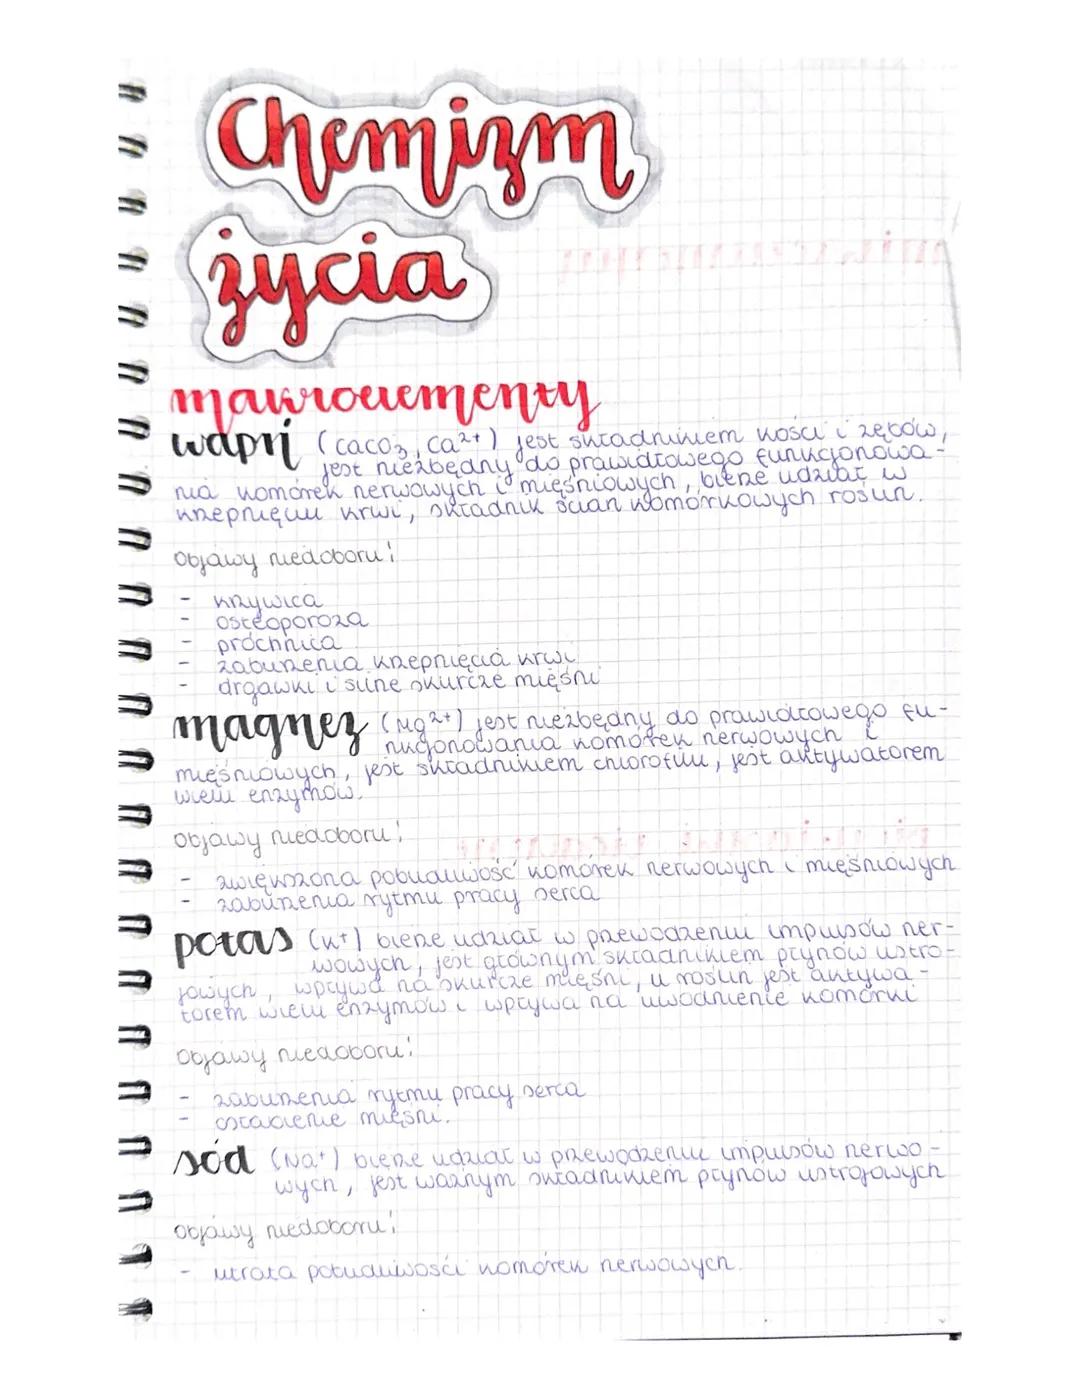 Chemizm
życia
makroelementy
wapń (CaCO3, Ca2+) jest składnikiem kości i zębów,
jest niezbędny do prawidłowego funkcjonowa-
nia komórek nerwowych i mięśniowych, bierze udział w
krzepnięciu krwi, składnik ścian komórkowych roślin.
objawy niedoboru:
- krzywica
- osteoporoza
- próchnica
- zaburzenia krzepnięcia krwi
- drgawki i silne skurcze mięśni
magnez (Mg2+) jest niezbędny do prawidłowego fu-
nkcjonowania komórek nerwowych i
mięśniowych, jest składnikiem chlorofilu, jest aktywatorem
wielu enzymów.
objawy niedoboru:
- zwiększona pobudliwość komórek nerwowych i mięśniowych
- zaburzenia rytmu pracy serca
potas (K+) bierze udział w przewodzeniu impulsów ner-
wowych, jest głównym składnikiem płynów ustro-
jowych, wpływa na skurcze mięśni, u roślin jest aktywa-
torem wielu enzymów i wpływa na uwodnienie komórki
objawy niedoboru:
- zaburzenia rytmu pracy serca
- osłabienie mięśni.
sód (Na+) bierze udział w przewodzeniu impulsów nerwo-
wych, jest ważnym składnikiem płynów ustrojowych
objawy niedoboru:
- utrata pobudliwości komórek nerwowych.